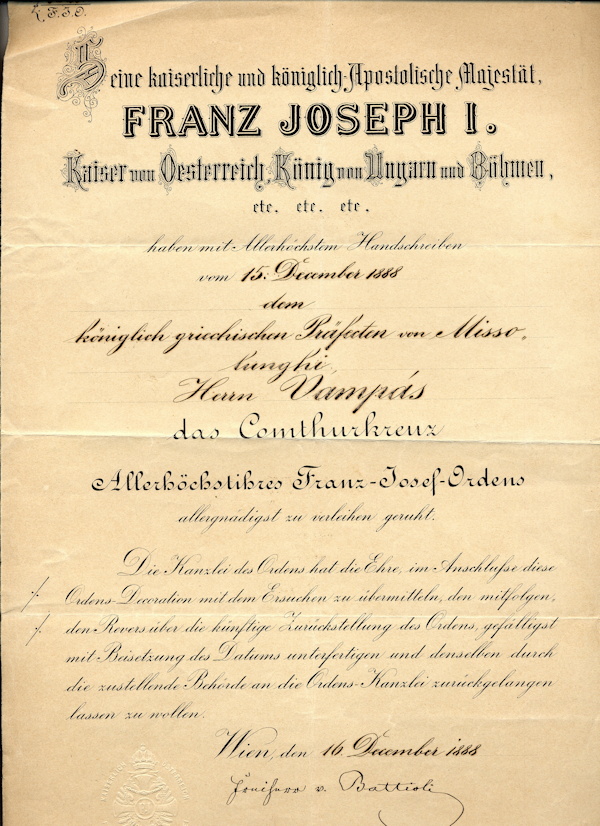 K. F. J. O.
Seine kaiserliche und königlich-Apostolische Majestät,
FRANZ JOSEPH I.
Kaiser von Oesterreich, König von Ungarn und Böhmen,
etc. etc. etc.
haben mit Allerhöchstem Handschreiben
vom 15: December 1888
dem
königlich griechischen Präfecten von Misso„
lunghi,
Herrn Vampás
das Comthurkreuz
Allerhöchstihres Franz-Josef-Ordens
allergnädigst zu verleihen geruht.
Die Kanzlei des Ordens hat die Ehre, im Anschlusse diese
Ordens-Decoration mit dem Ersuchen zu übermitteln, den mitfolgen,
den Revers über die künftige Zurückstellung des Ordens, gefälligst
mit Beisetzung des Datums unterfertigen und denselben durch
die zustellende Behörde an die Ordens-Kanzlei zurückgelangen
lassen zu wollen.
Wien, den 16 December 1888
Freiherr v. Battioli